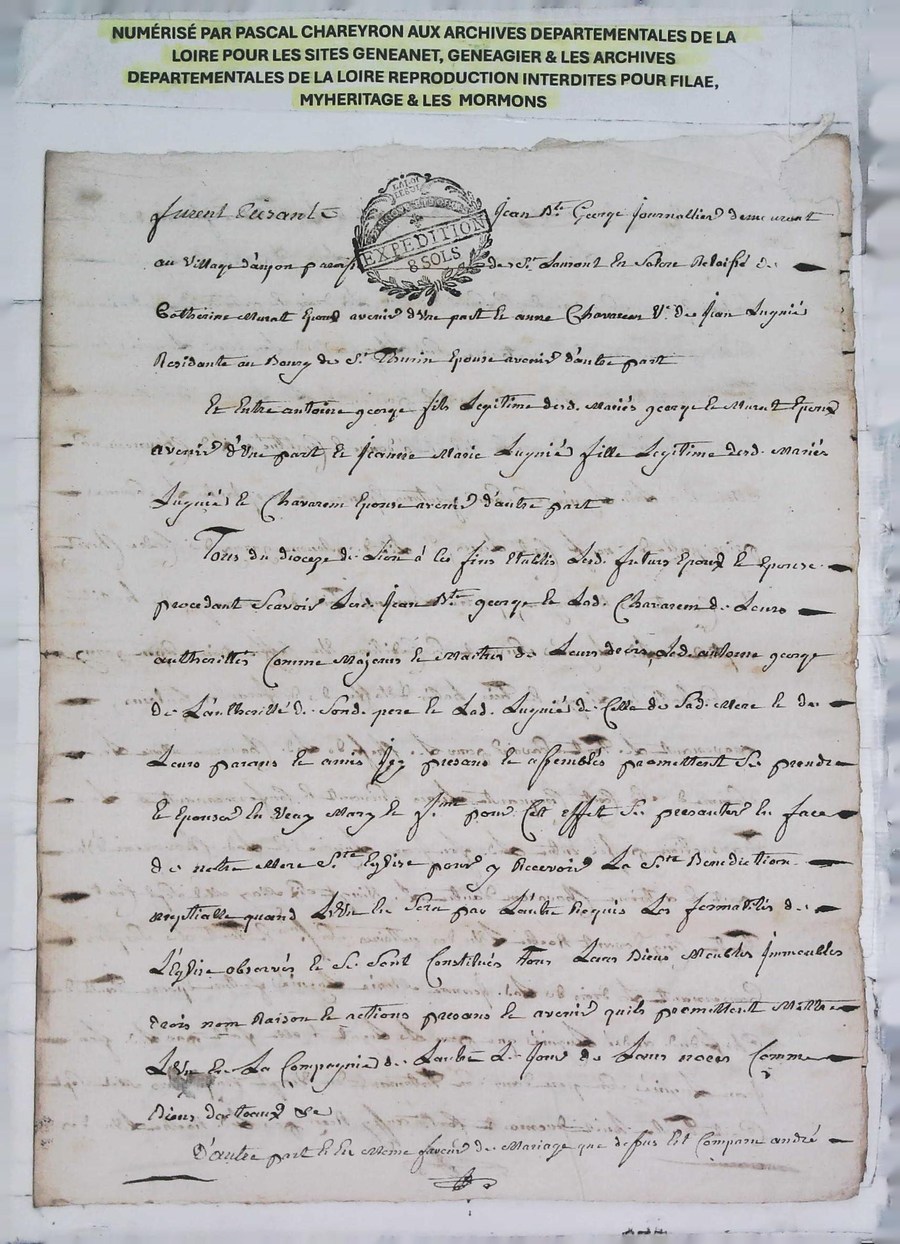 NUMÉRISÉ PAR PASCAL CHAREYRON AUX ARCHIVES DEPARTEMENTALES DE LA
LOIRE POUR LES SITES GENEANET, GENEAGIER & LES ARCHIVES
DEPARTEMENTALES DE LA LOIRE REPRODUCTION INTERDITES POUR FILAE,
MYHERITAGE & LES MORMONS
furent présants Jean Bte George Journallier demeurant
EXPEDITION
8 SOLS
au Village d'anjon paroisse de St Laurent En Solore Relaissé de
Catherine Murat Epoux avenir d'Une part Et anne Chavaren Ve de Jean Lugnié
Residante au Bourg de St Thurin Epouse avenir d'autre part
Et Entre antoine george fils Legitime desd. Mariés george Et Murat Epoux
avenir d'Une part Et Jeanne Marie Lugnié fille Legitime desd. Mariés
Lugnié Et Chavaren Epouse avenir d'autre part
Tous du dioceze de Lion à Ces fins Etablis Lesd. futurs Epoux Et Epouse
procedant Scavoir Led. Jean Bte george Et Lad. Chavaren de Leurs
authorittés Comme Majeurs Et Maitres de Leurs droits, Led. antoine george
de L'authorité de Sond. pere Et Lad. Lugnié de Celle de Sad. Mere Et de
Leurs parans Et amis Icy presans Et assemblés promettent Se prendre
Et Epouser En Vray Mary Et fme pour Cet effet Se presanter En face
de notre Mere Ste Eglise pour y Recevoir La Ste Benediction
nuptialle quand L'Un En Sera par L'autre Requis Les formalités de
L'Eglise observés Et Se Sont Constitués Tous Leurs Biens Meubles Immeubles
Drois nom Raison Et actions presans Et avenir quils promettent Mettre
L'Un En La Compagnie de L'autre Le Jour de Leurs noces Comme
Biens dotaux &c
D'autre part Et En Meme faveur de Mariage que dessus Est Comparu andré